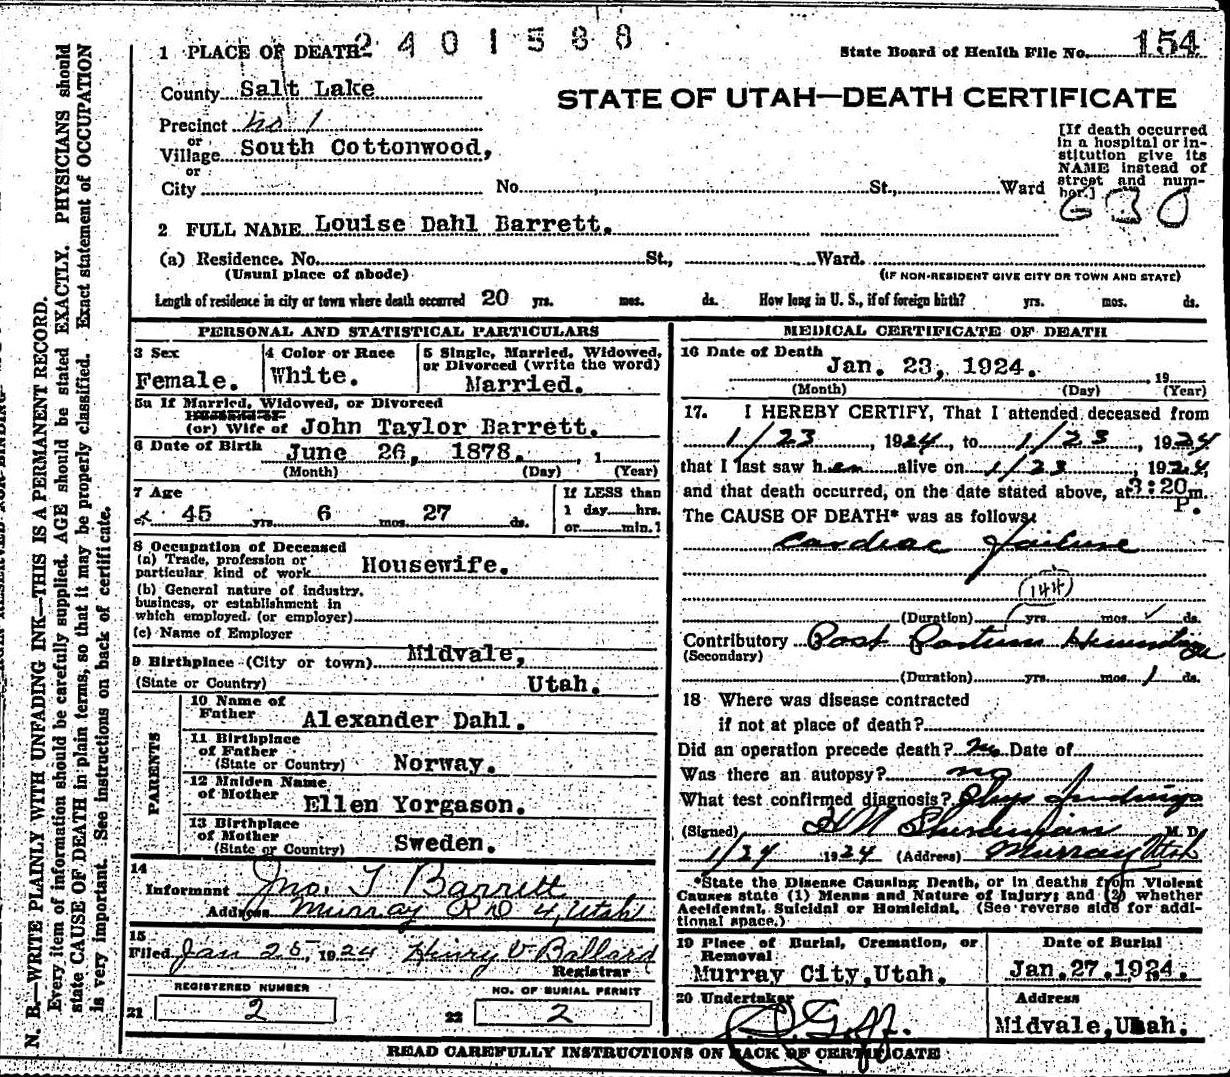 1 PLACE OF DEATH 2401588
State Board of Health File No. 154
County Salt Lake
STATE OF UTAH—DEATH CERTIFICATE
Precinct No 1
or
Village South Cottonwood,
or
City No. St., Ward
[If death occurred
in a hospital or in-
stitution give its
NAME instead of
street and num-
ber.]
2 FULL NAME Louise Dahl Barrett.
(a) Residence. No. St., Ward.
(Usual place of abode) (IF NON-RESIDENT GIVE CITY OR TOWN AND STATE)
Length of residence in city or town where death occurred 20 yrs. mos. ds. How long in U. S., if of foreign birth? yrs. mos. ds.
PERSONAL AND STATISTICAL PARTICULARS
3 Sex
Female.
4 Color or Race
White.
5 Single, Married, Widowed,
or Divorced (write the word)
Married.
5a If Married, Widowed, or Divorced
(or) Wife of John Taylor Barrett.
6 Date of Birth June 26, 1878. , 1
(Month) (Day) (Year)
7 Age
45 yrs. 6 mos. 27 ds.
If LESS than
1 day hrs.
or min.1
8 Occupation of Deceased
(a) Trade, profession or
particular kind of work Housewife.
(b) General nature of industry,
business, or establishment in
which employed. (or employer)
(c) Name of Employer
9 Birthplace (City or town) Midvale,
(State or Country) Utah.
PARENTS
10 Name of
Father Alexander Dahl.
11 Birthplace
of Father
(State or Country) Norway.
12 Maiden Name
of Mother Ellen Yorgason.
13 Birthplace
of Mother
(State or Country) Sweden.
14
Informant Jno. T Barrett
Address Murray R D 4, Utah
15
Filed Jan 25, 1924 Henry V Ballard
Registrar
REGISTERED NUMBER
21 2
NO. OF BURIAL PERMIT
22 2
MEDICAL CERTIFICATE OF DEATH
16 Date of Death
Jan. 23, 1924. , 19
(Month) (Day) (Year)
17. I HEREBY CERTIFY, That I attended deceased from
1/23, 1924, to 1/23, 1924
that I last saw her alive on 1/23, 1924,
and that death occurred, on the date stated above, at 3:20 m.
P.
The CAUSE OF DEATH* was as follows:
Cardiac failure
(144)
(Duration) yrs. mos. ds.
Contributory Post Partum Hemorrhage
(Secondary)
(Duration) yrs. mos. 1 ds.
18 Where was disease contracted
if not at place of death?
Did an operation precede death? No Date of
Was there an autopsy? no
What test confirmed diagnosis? Phys findings
(Signed) M. D.
1/24 1924 (Address) Murray Utah
*State the Disease Causing Death, or in deaths from Violent
Causes state (1) Means and Nature of Injury; and (2) whether
Accidental, Suicidal or Homicidal. (See reverse side for addi-
tional space.)
19 Place of Burial, Cremation, or
Removal
Murray City, Utah.
Date of Burial
Jan. 27. 1924.
20 Undertaker
Goff.
Address
Midvale, Utah.
READ CAREFULLY INSTRUCTIONS ON BACK OF CERTIFICATE
N. B.—WRITE PLAINLY WITH UNFADING INK—THIS IS A PERMANENT RECORD.
Every item of information should be carefully supplied. AGE should be stated EXACTLY. PHYSICIANS should
state CAUSE OF DEATH in plain terms, so that it may be properly classified. Exact statement of OCCUPATION
is very important. See instructions on back of certificate.